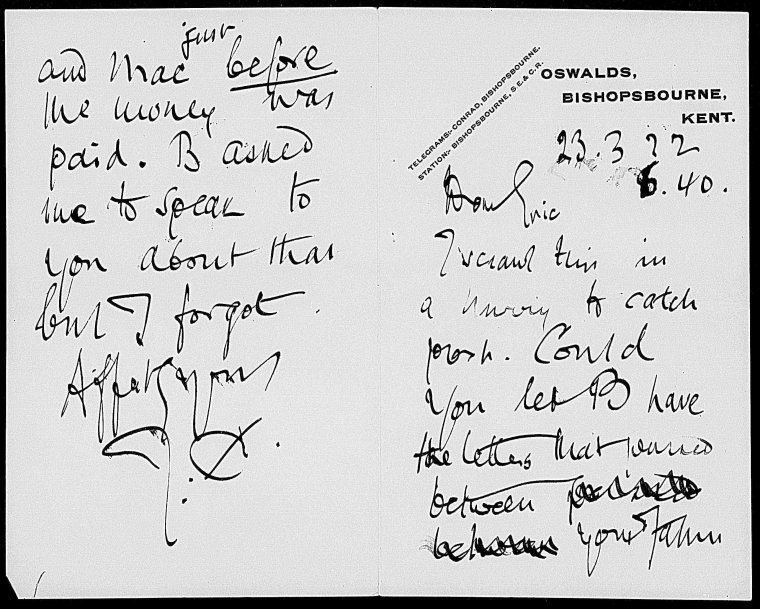 TELEGRAMS:- CONRAD, BISHOPSBOURNE.
STATION:- BISHOPSBOURNE, S.E. & C.R.
OSWALDS,
BISHOPSBOURNE,
KENT.
23.3 22
6.40.
Dear Eric
I scrawl this in
a hurry to catch
post. Could
you let B have
the letters that passed
between
between your Father
just
and Mac before
the money was
paid. B asked
me to speak to
you about that
but I forgot.
Affctly yours
J.C.